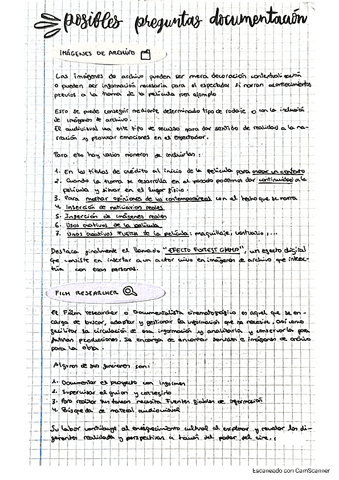 posibles preguntas documentación
IMÁGENES DE ARCHIVO
Las imágenes de archivo pueden ser mera decoración contextualización
o pueden ser información necesaria para el espectador si narran acontecimientos
previos a la trama de la película por ejemplo
Esto se puede conseguir mediante determinado tipo de rodaje o con la inclusión
de imágenes de archivo.
El audiovisual usa este tipo de recurso para dar sentido de realidad a la na-
rración y promover emociones en el espectador.
Para ello hay varias maneras de incluirlas:
1. En los títulos de crédito al inicio de la película para crear un contexto
2. Cuando la trama se desarrolla en el pasado podemos dar continuidad a la
película y situar en el lugar físico.
3. Para mostrar opiniones de los contemporáneos con el hecho que se narra
4. Inserción de noticiarios reales
5. Inserción de imágenes reales
6. Usos creativos de la película
7. Usos creativos fuera de la película: maquillaje, vestuario, ...
Destaca finalmente el llamado "EFECTO FOREST GUMP", un efecto digital
que consiste en insertar a un actor vivo en imágenes de archivo que interac-
túa con esas personas.
FILM RESEARCHER
El Film researcher o Documentalista cinematográfico es aquel que se en-
carga de buscar, adaptar y gestionar la información que se necesite, así como
facilitar la circulación de esa información y analizarla y conservarla para
futuras producciones. Se encarga de encontrar sonidos e imágenes de archivo
para la obra.
Algunas de sus funciones son:
1. Documentar el proyecto con informes
2. Supervisar el guion y corregirlo
3. Para realizar sus tareas necesita fuentes fiables de información
4. Búsqueda de material audiovisual
Su labor contribuye al enriquecimiento cultural al explorar y revelar las di-
ferentes realidades y perspectivas a través del poder del cine.
Escaneado con CamScanner